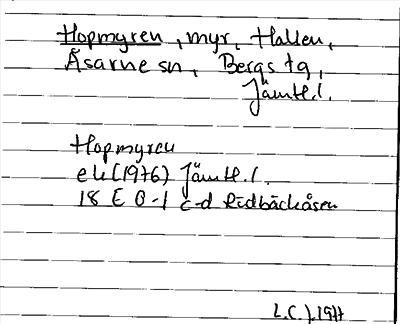 Hopmyren, myr, Hallen,
Åsarne sn, Bergs tg,
Jämtl.l.
Hopmyren
ek (1976) Jämtl.l.
18 E 0-1 c-d Ridbäckåsen
L.C.J. 1977